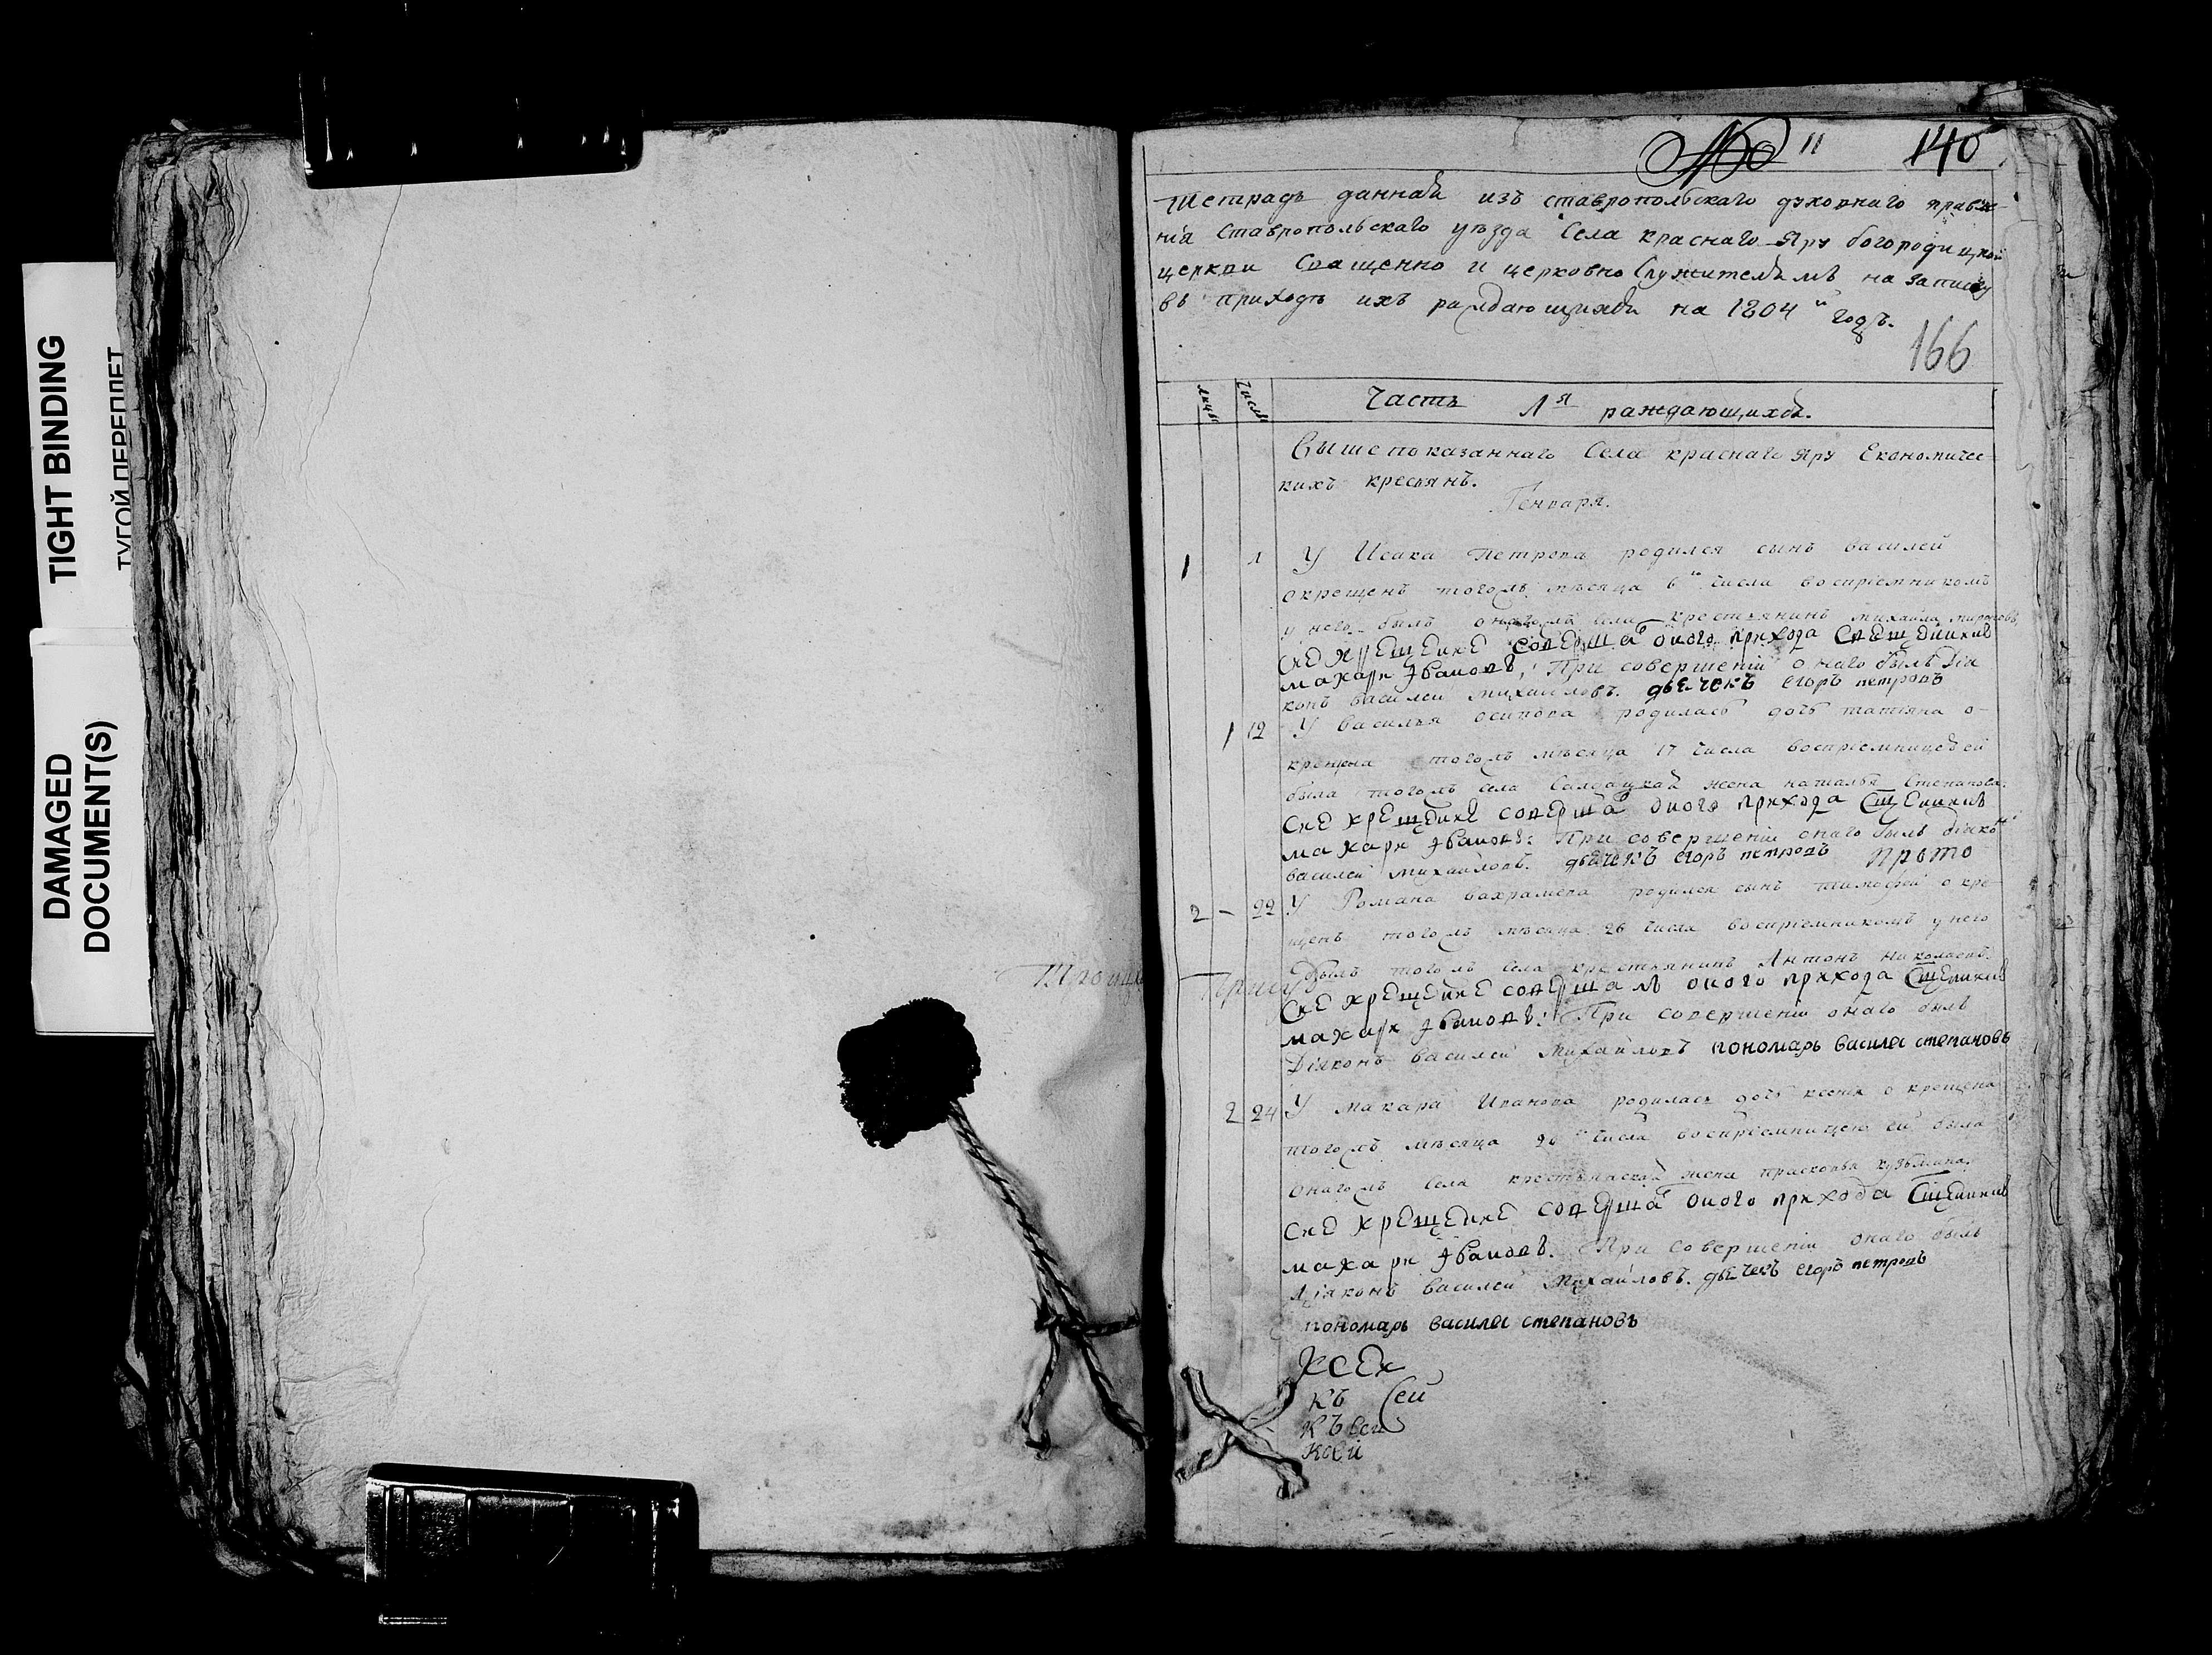 TIGHT BINDING
ТУГОЙ ПЕРЕПЛЕТ
DAMAGED
DOCUMENT(S)
№ 11 140
Тетрадь данная изъ ставропольскаго духовнаго правле
нія Ставропольскаго уѣзда Села краснаго Яру богородицкой
церкви Священно и церковно Служителямъ на записку
въ приходѣ ихъ раждающихся на 1804 й годъ.
166
Числы
Часть 1я раждающихся.
Вышепоказаннаго Села краснаго Яру Економичес
кихъ кресьянъ.
Генваря.
1 1 У Исака Петрова родился сынъ василей
окрещенъ тогожъ мѣсяца 6 го числа воспріемникомъ
у него былъ онагожъ села крестьянинъ михайла
сие крещение совершалъ оного прихода Священникъ
махари Иванов: При совершеніи онаго былъ Діа
конъ василей михайловъ. дьечекъ егоръ петровъ
1 12 У василья осипова родилась дочь татіяна о-
крещена тогожъ мѣсяца 17 числа воспріемницей ей
была тогожъ села Салдацкая жена наталья Степанова.
сие крещение совершалъ оного прихода Сщенникъ
махари Ивановъ: При совершеніи онаго былъ діяконъ
василей михайловъ. дьечекъ егоръ петровъ прото
2 - 22 У Романа вахрамеева родился сынъ тимофей окре
щенъ тогожъ мѣсяца 26 числа воспріемникомъ у него
Троицк
былъ тогожъ села крестьянинъ Антонъ николаевъ.
сие крещение совершалъ оного прихода Сщенникъ
махари Ивановъ: При совершеніи онаго былъ
Діяконъ василей михайловъ пономарь василеи степановъ
2 24 У макара Иванова родилась дочь ксенія окрещена
тогожъ мѣсяца числа воспріемницею ей была
онагожъ села крестьянская жена прасковья кузьмина.
сие крещение совершалъ оного прихода Сщенникъ
махари Ивановъ. При совершеніи онаго былъ
Діяконъ василей михайловъ. дьечекъ егоръ петровъ
пономарь василеи степановъ
къ сей
къ сей
ксей